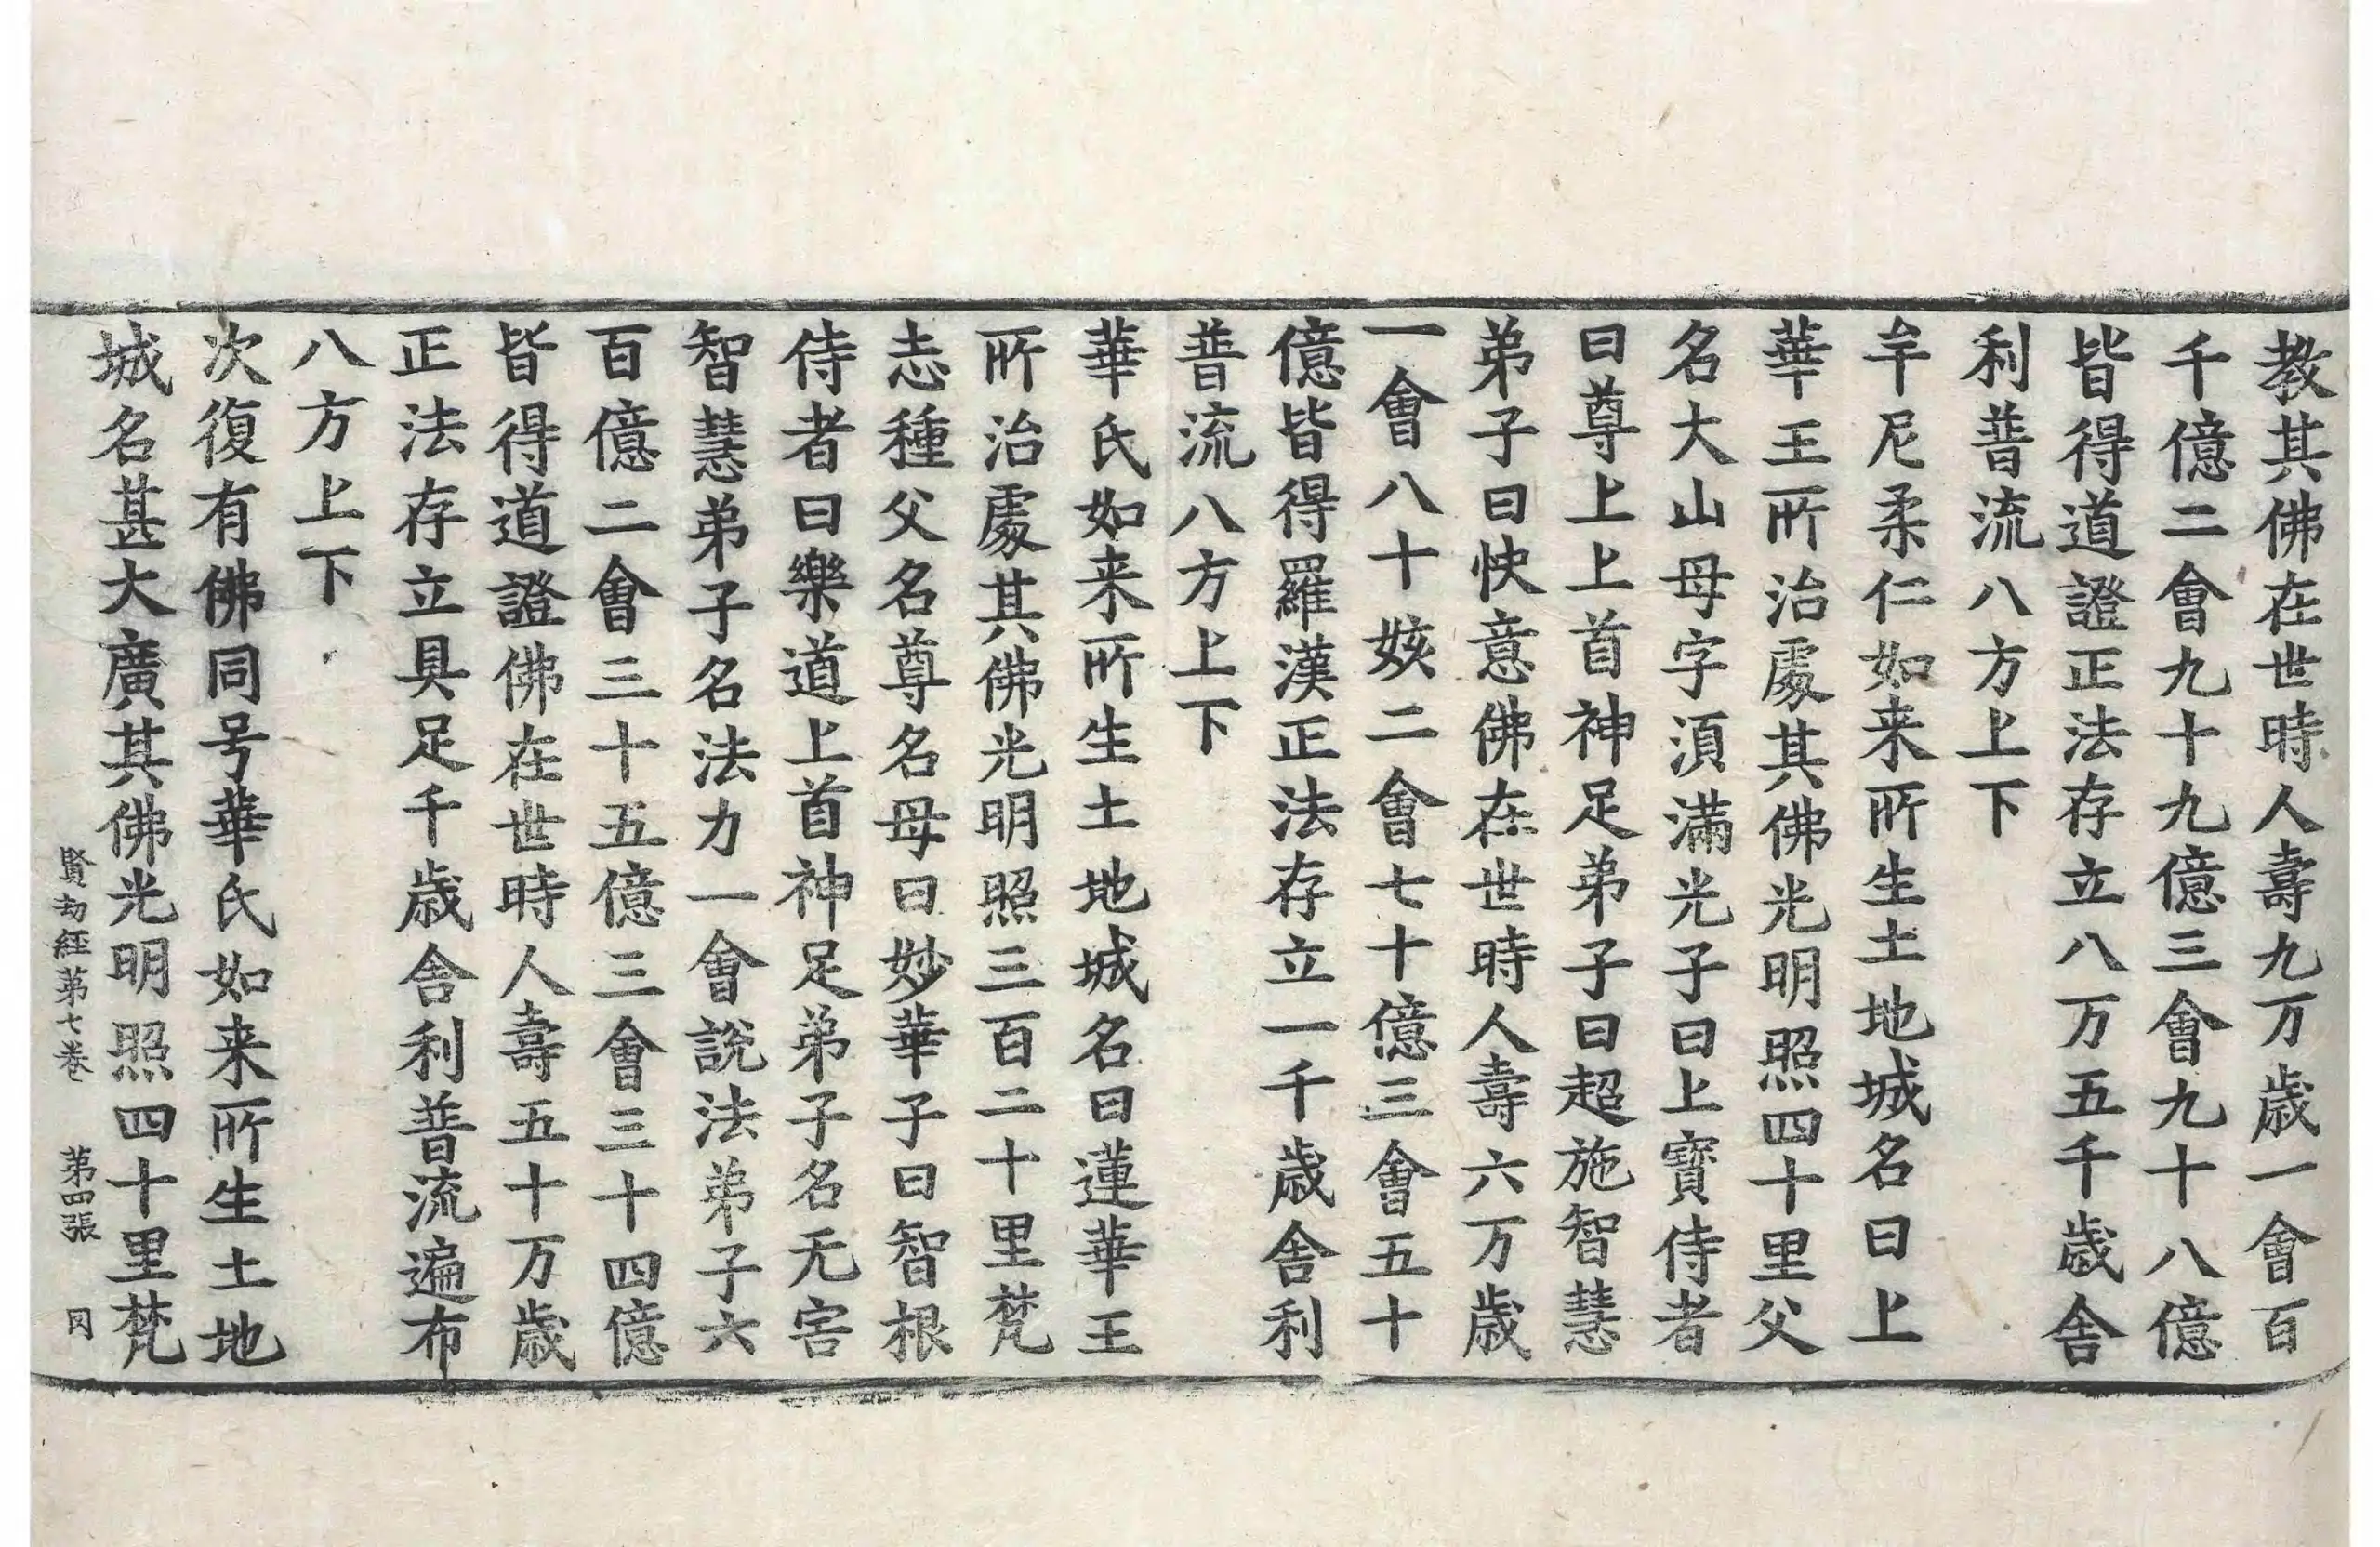 教其佛在世時人壽九万歲一會百
千億二會九十九億三會九十八億
皆得道證正法存立八万五千歲舍
利普流八方上下
牟尼柔仁如来所生土地城名曰上
華王所治處其佛光明照四十里父
名大山母字須滿光子曰上寶侍者
曰尊上上首神足弟子曰超施智慧
弟子曰快意佛在世時人壽六万歲
一會八十姟二會七十億三會五十
億皆得羅漢正法存立一千歲舍利
普流八方上下
華氏如来所生土地城名曰蓮華王
所治處其佛光明照三百二十里梵
志種父名尊名母曰妙華子曰智根
侍者曰樂道上首神足弟子名无害
智慧弟子名法力一會說法弟子六
百億二會三十五億三會三十四億
皆得道證佛在世時人壽五十万歲
正法存立具足千歲舍利普流遍布
八方上下
次復有佛同号華氏如来所生土地
城名甚大廣其佛光明照四十里梵
賢劫經第七卷 第四張 同